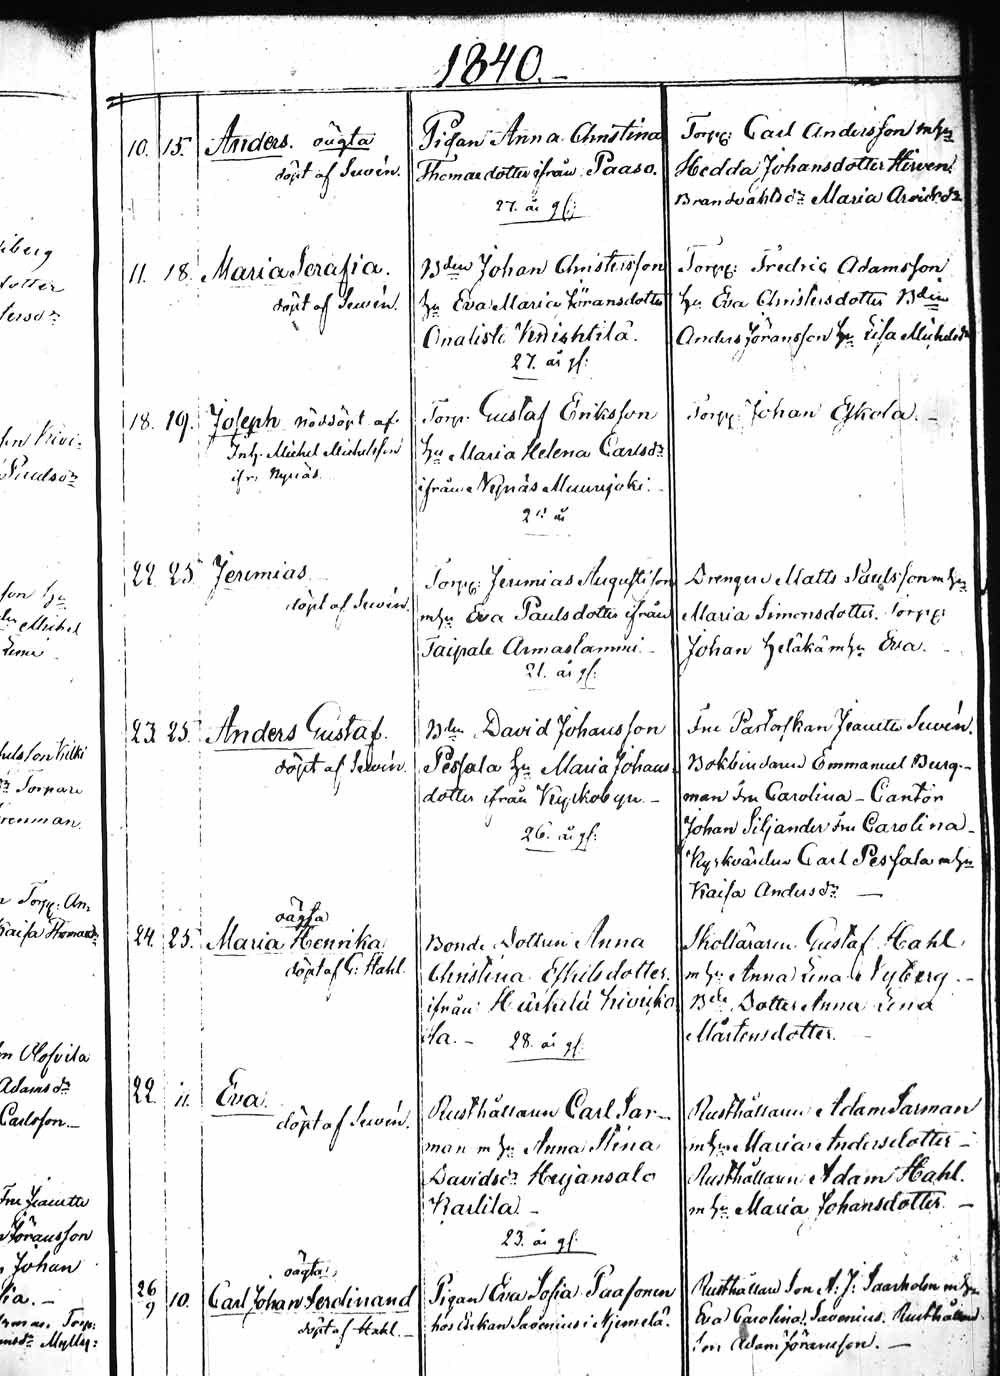 1840.
10. 15. Anders. oägta
döpt af Sewén.
Pigan Anna Christina
Thomasdotter ifrån Paaso.
27. år gl:
Torpp: Carl Andersson m hu
Hedda Johansdotter Hirven.
Brandvaktsdr Maria Arvidsdr
11. 18. Maria Serafia.
döpt af Sewén.
Bden Johan Christersson
hu Eva Maria Jöransdotter
Onalisti
27. år gl:
Torpp: Fredric Adamsson
hu Eva Christersdotter Bden
Anders Jöransson hu Lisa Michelsdr
18. 19. Joseph nöddöpt af
Inh. Michel Michelsson
ifr. Nynäs
Torp. Gustaf Eriksson
hu Maria Helena Carlsdr
ifrån Nynäs Muurijoki.
21 år
Torpp: Johan Eskola.
22. 25. Jeremias
döpt af Sewén.
Torpp: Jeremias Augustisson
m hu Eva Paulsdotter ifrån
Taipale Armaslammi.
21. år gl:
Drengen Matts Paulsson m hu
Maria Simonsdotter. Torpp:
Johan m hu Eva.
23. 25. Anders Gustaf.
döpt af Sewén.
Bden David Johansson
Pessala hu Maria Johans
dotter ifrån Kyrkobyn.
26. år gl:
Fru Pastorskan Jeanette Sewén.
Bokbindaren Emmanuel Berg-
man Fru Carolina - Cantor
Johan Siljander Fru Carolina
Kyrkvärden Carl Pessala m hu
Kaisa Andersdr
oägta
24. 25. Maria Henrika
döpt af G: Hahl.
Bonde Dottren Anna
Christina Eskilsdotter.
ifrån Härkälä
la.
28. år gl:
Skolläraren Gustaf Hahl
m hu Anna Lena Nyberg.
Bde Dotter Anna Lena
Mårtensdotter.
22. 11. Eva.
döpt af Sewén.
Rusthållaren Carl Sar-
man m hu Anna Stina
Davidsdr Heijansalo
Karlila
23. år gl:
Rusthållaren Adam Sarman
m hu Maria Andersdotter
Rusthållaren Adam Hahl.
m hu Maria Johansdotter.
oägta
26/9 10. Carl Johan Ferdinand
döpt af Hahl.
Pigan Eva Sofia Paasonen
hos Enkan Savenius i Njemelä.
Rusthållare Son A. J. Saarholm m hu
Eva Carolina Savenius. Rusthållare
Son Adam Jöransson.
iberg
dotter
Paulsdr
son hu
Michel
Lena
Torpare
Torpp: An
Kaisa Thomasdr
Olofsila
Adamsdr
Carlsson
Fru Jeanette
Jöransson
Johan
Torp: